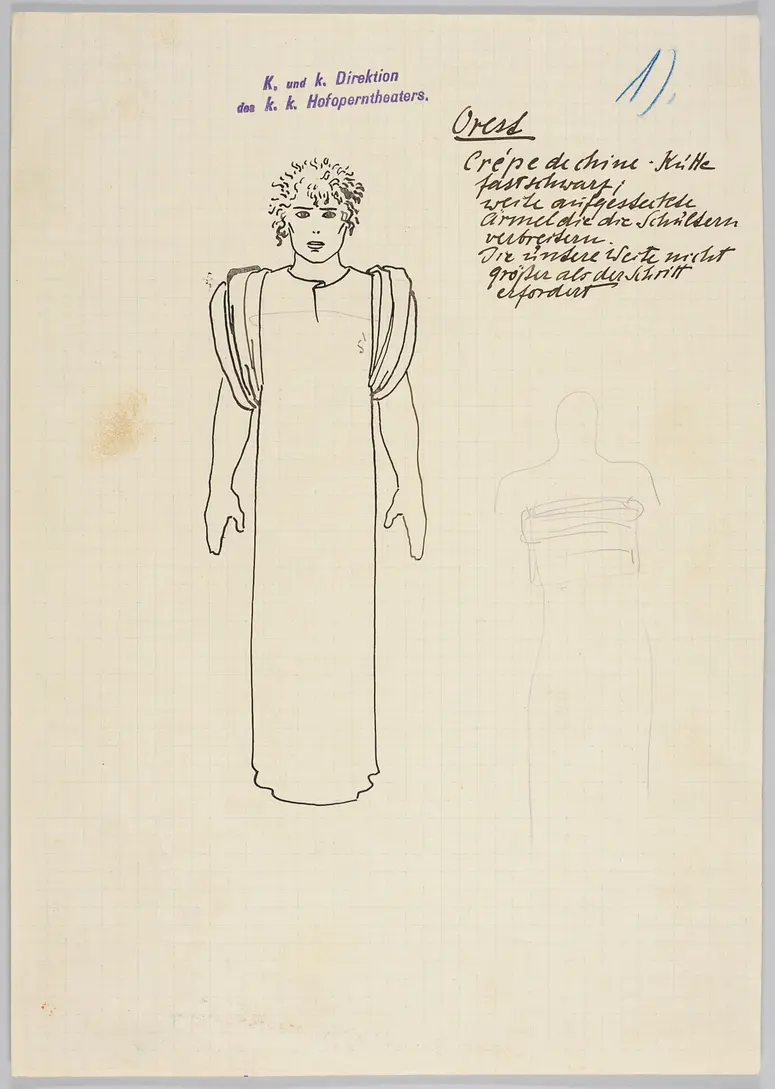 K. und k. Direktion
des k. k. Hofoperntheaters.
1).
Orest
Crêpe de chine - Kutte
fast schwarz;
weite aufgesteckte
Ärmel die die Schultern
verbreitern.
Die untere Weite nicht
größer als der Schritt
erfordert